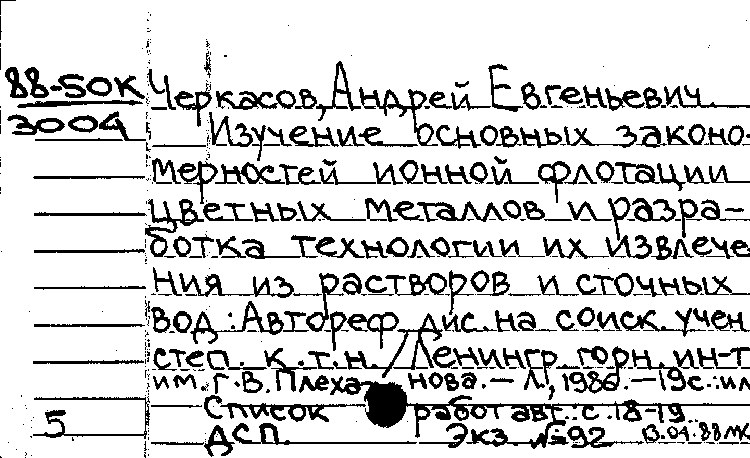 88-50К Черкасов, Андрей Евгеньевич.
3004 Изучение основных законо-
мерностей ионной флотации
цветных металлов и разра-
ботка технологии их извлече
ния из растворов и сточных
вод : Автореф. дис. на соиск. учен
степ. к.т.н. / Ленингр. горн. ин-т
им. Г.В. Плеханова. – Л., 1986. – 19с. : ил
Список работ авт.: с. 18-19
5 ДСП. Экз. №92 13.01.88